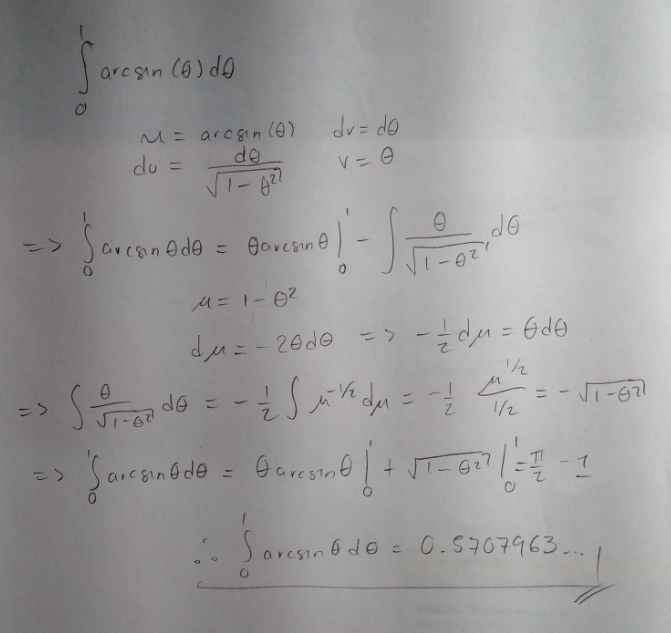 ∫₀¹ arcsin(θ)dθ
u = arcsin(θ) dv = dθ
du = dθ/√(1-θ²) v = θ
=> ∫₀¹ arcsinθdθ = θarcsinθ|₀¹ - ∫ θ/√(1-θ²) dθ
μ = 1-θ²
dμ = -2θdθ => -½dμ = θdθ
=> ∫ θ/√(1-θ²) dθ = -½ ∫ μ^(-1/2) dμ = -½ μ^(1/2)/(1/2) = -√(1-θ²)
=> ∫₀¹ arcsinθdθ = θarcsinθ|₀¹ + √(1-θ²)|₀¹ = π/2 - 1
∴ ∫₀¹ arcsinθdθ = 0.5707963...